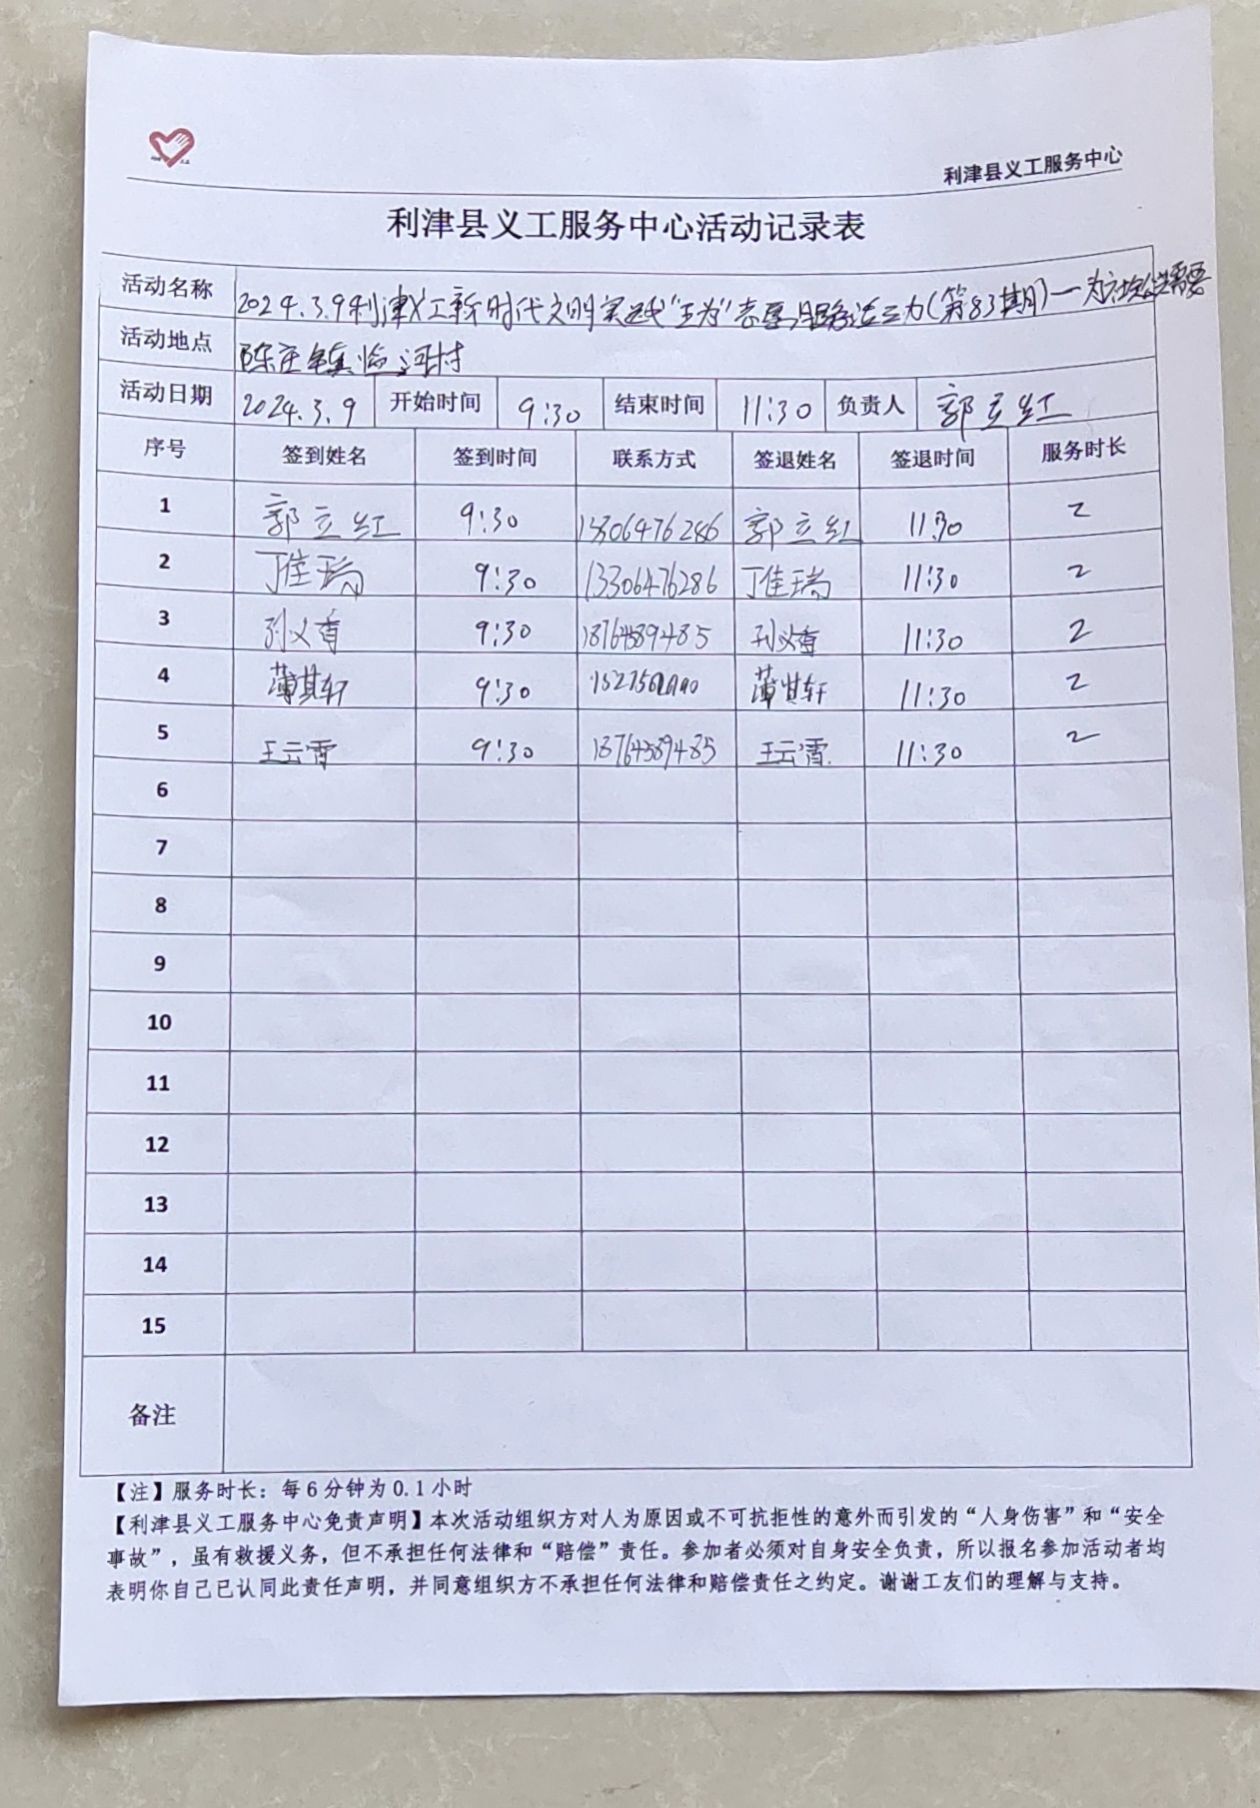 利津县义工服务中心
利津县义工服务中心活动记录表
活动名称 2024.3.9利津义工新时代文明实践"五为"志愿服务活动(第83期)—为
活动地点 陈庄镇临河村
活动日期 2024.3.9 开始时间 9:30 结束时间 11:30 负责人 郭立红
序号 签到姓名 签到时间 联系方式 签退姓名 签退时间 服务时长
1 郭立红 9:30 13306476286 郭立红 11:30 2
2 丁佳瑞 9:30 13306476286 丁佳瑞 11:30 2
3 孙义香 9:30 18764589485 孙义香 11:30 2
4 薄其轩 9:30 薄其轩 11:30 2
5 王云霄 9:30 18764589485 王云霄 11:30 2
6
7
8
9
10
11
12
13
14
15
备注
【注】服务时长：每6分钟为0.1小时
【利津县义工服务中心免责声明】本次活动组织方对人为原因或不可抗拒性的意外而引发的“人身伤害”和“安全
事故”，虽有救援义务，但不承担任何法律和“赔偿”责任。参加者必须对自身安全负责，所以报名参加活动者均
表明你自己已认同此责任声明，并同意组织方不承担任何法律和赔偿责任之约定。谢谢工友们的理解与支持。